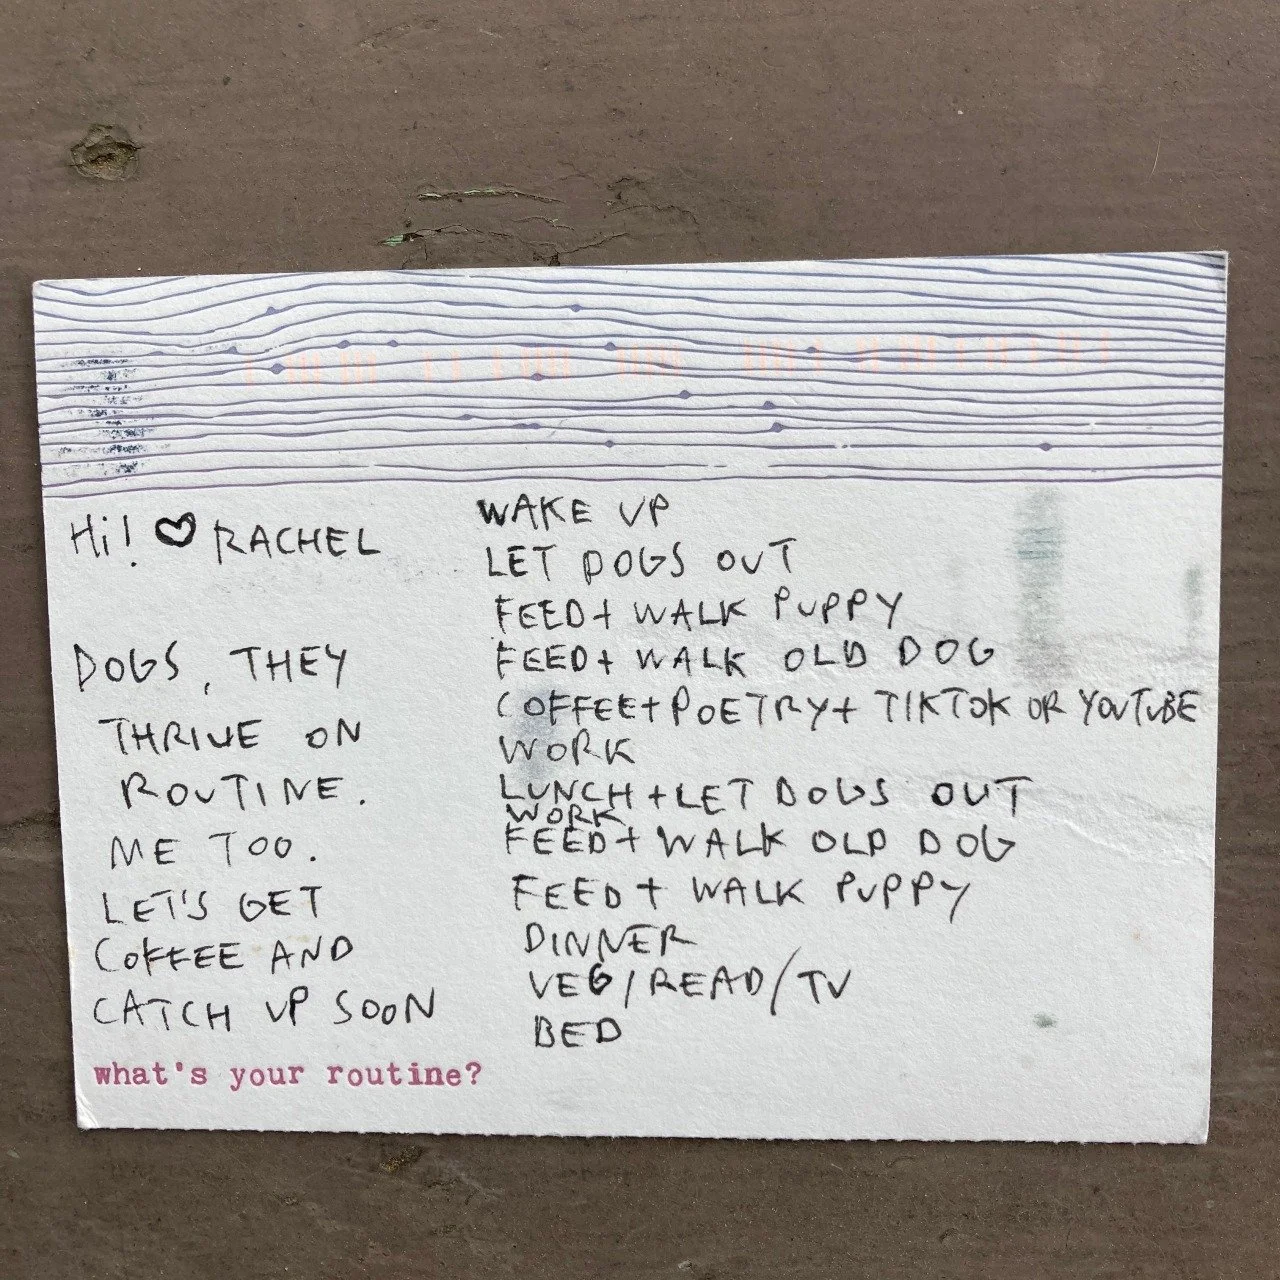 Hi! ♡ RACHEL
DOGS, THEY
THRIVE ON
ROUTINE.
ME TOO.
LET'S GET
COFFEE AND
CATCH UP SOON
what's your routine?
WAKE UP
LET DOGS OUT
FEED + WALK PUPPY
FEED + WALK OLD DOG
COFFEE + POETRY + TIKTOK OR YOUTUBE
WORK
LUNCH + LET DOGS OUT
WORK
FEED + WALK OLD DOG
FEED + WALK PUPPY
DINNER
VEG / READ / TV
BED